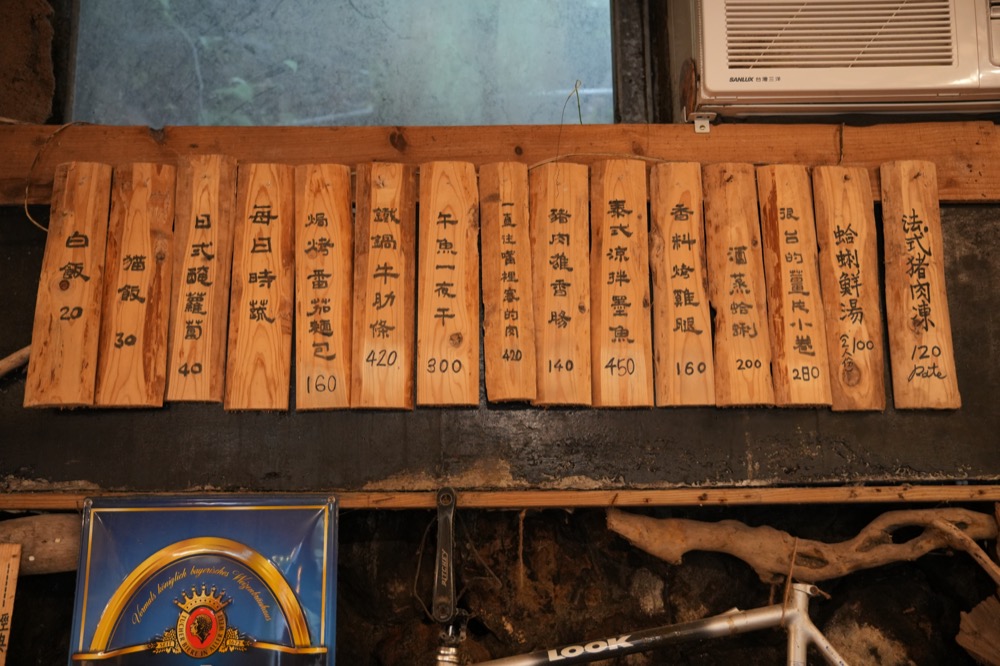 SANLUX 台灣三洋
白飯
20
貓飯
30
日式醃蘿蔔
40
每日時蔬
焗烤番茄麵包
160
鐵鍋牛肋條
420
午魚一夜干
300
一直往嘴裡塞的肉
420
豬肉雞香腸
140
泰式涼拌墨魚
450
香料烤雞腿
160
酒蒸蛤蜊
200
很台的薑片小卷
280
蛤蜊鮮湯
100
法式豬肉凍
120
Pate
Vormals königlich bayerisches Weizenbrauhaus
LOOK